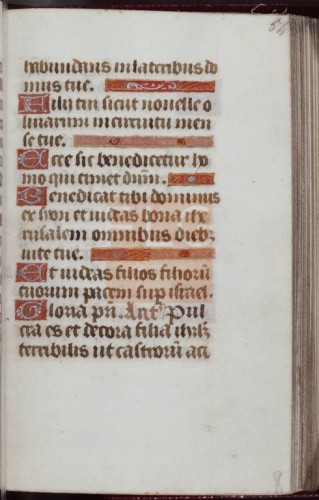 habundans in lateribus do
mus tue.
Filii tui sicut nouelle o
liuarum in circuitu men
se tue.
Ecce sic benedicetur ho
mo qui timet dūm.
Benedicat tibi dominus
ex syon et uideas bona ihe
rusalem omnibus dieb;
uite tue.
Et uideas filios filiorū
tuorum pacem sup israel.
Gloria pri. Ant. Pul
cra es et decora filia ihrlm
terribilis ut castrorū aci